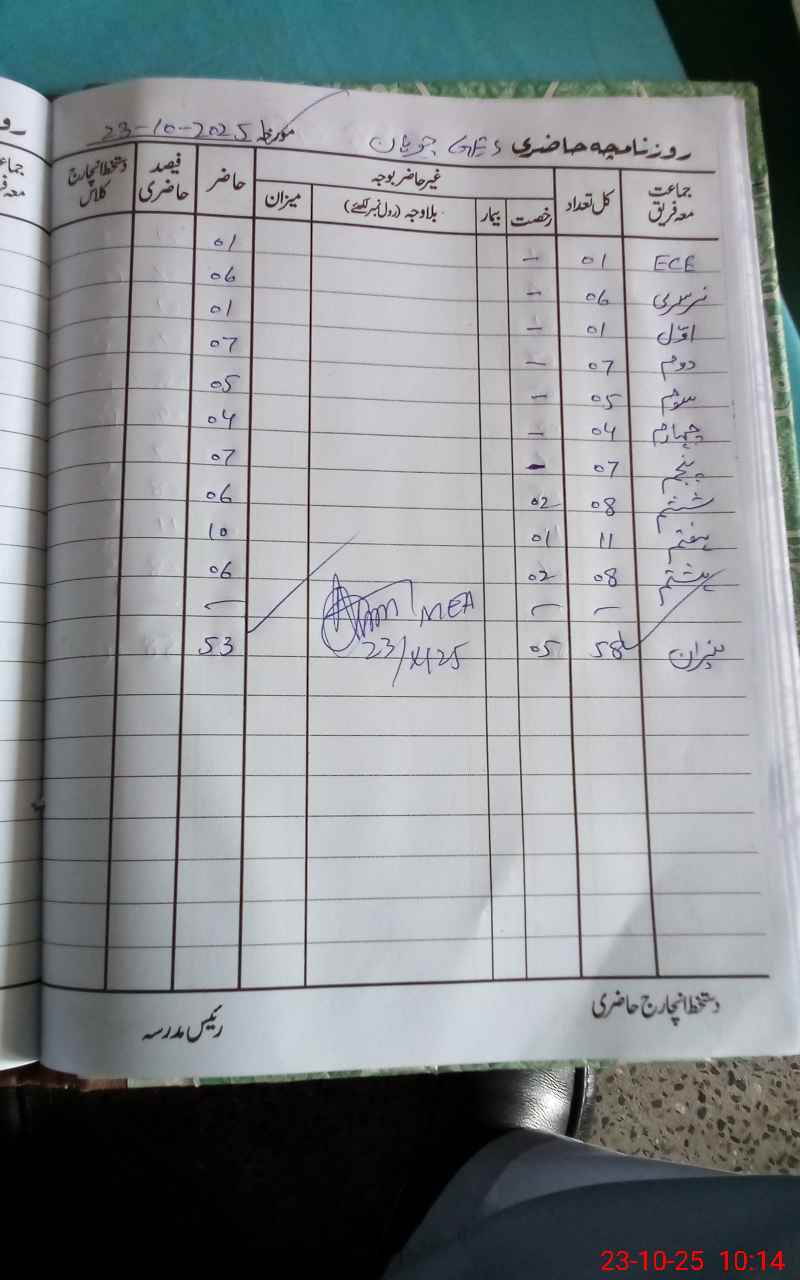 روزنامچہ حاضری GES جوپان مورخہ 23-10-2025
جماعت معہ فریق کل تعداد غیر حاضر بوجہ حاضر فیصد حاضری دستخط انچارج کلاس
رخصت بیمار بلاوجہ (رول نمبر لکھئے) میزان
ECE 01 - 01
نرسری 06 - 06
اوّل 01 - 01
دوم 07 - 07
سوم 05 - 05
چہارم 04 - 04
پنجم 07 - 07
ششم 08 02 06
ہفتم 11 01 10
ہشتم 08 02 06
- - -
میزان 58 05 53
MEA
23/X/25
دستخط انچارج حاضری
رئیس مدرسہ
رو
جماعت
معہ فریق
23-10-25 10:14